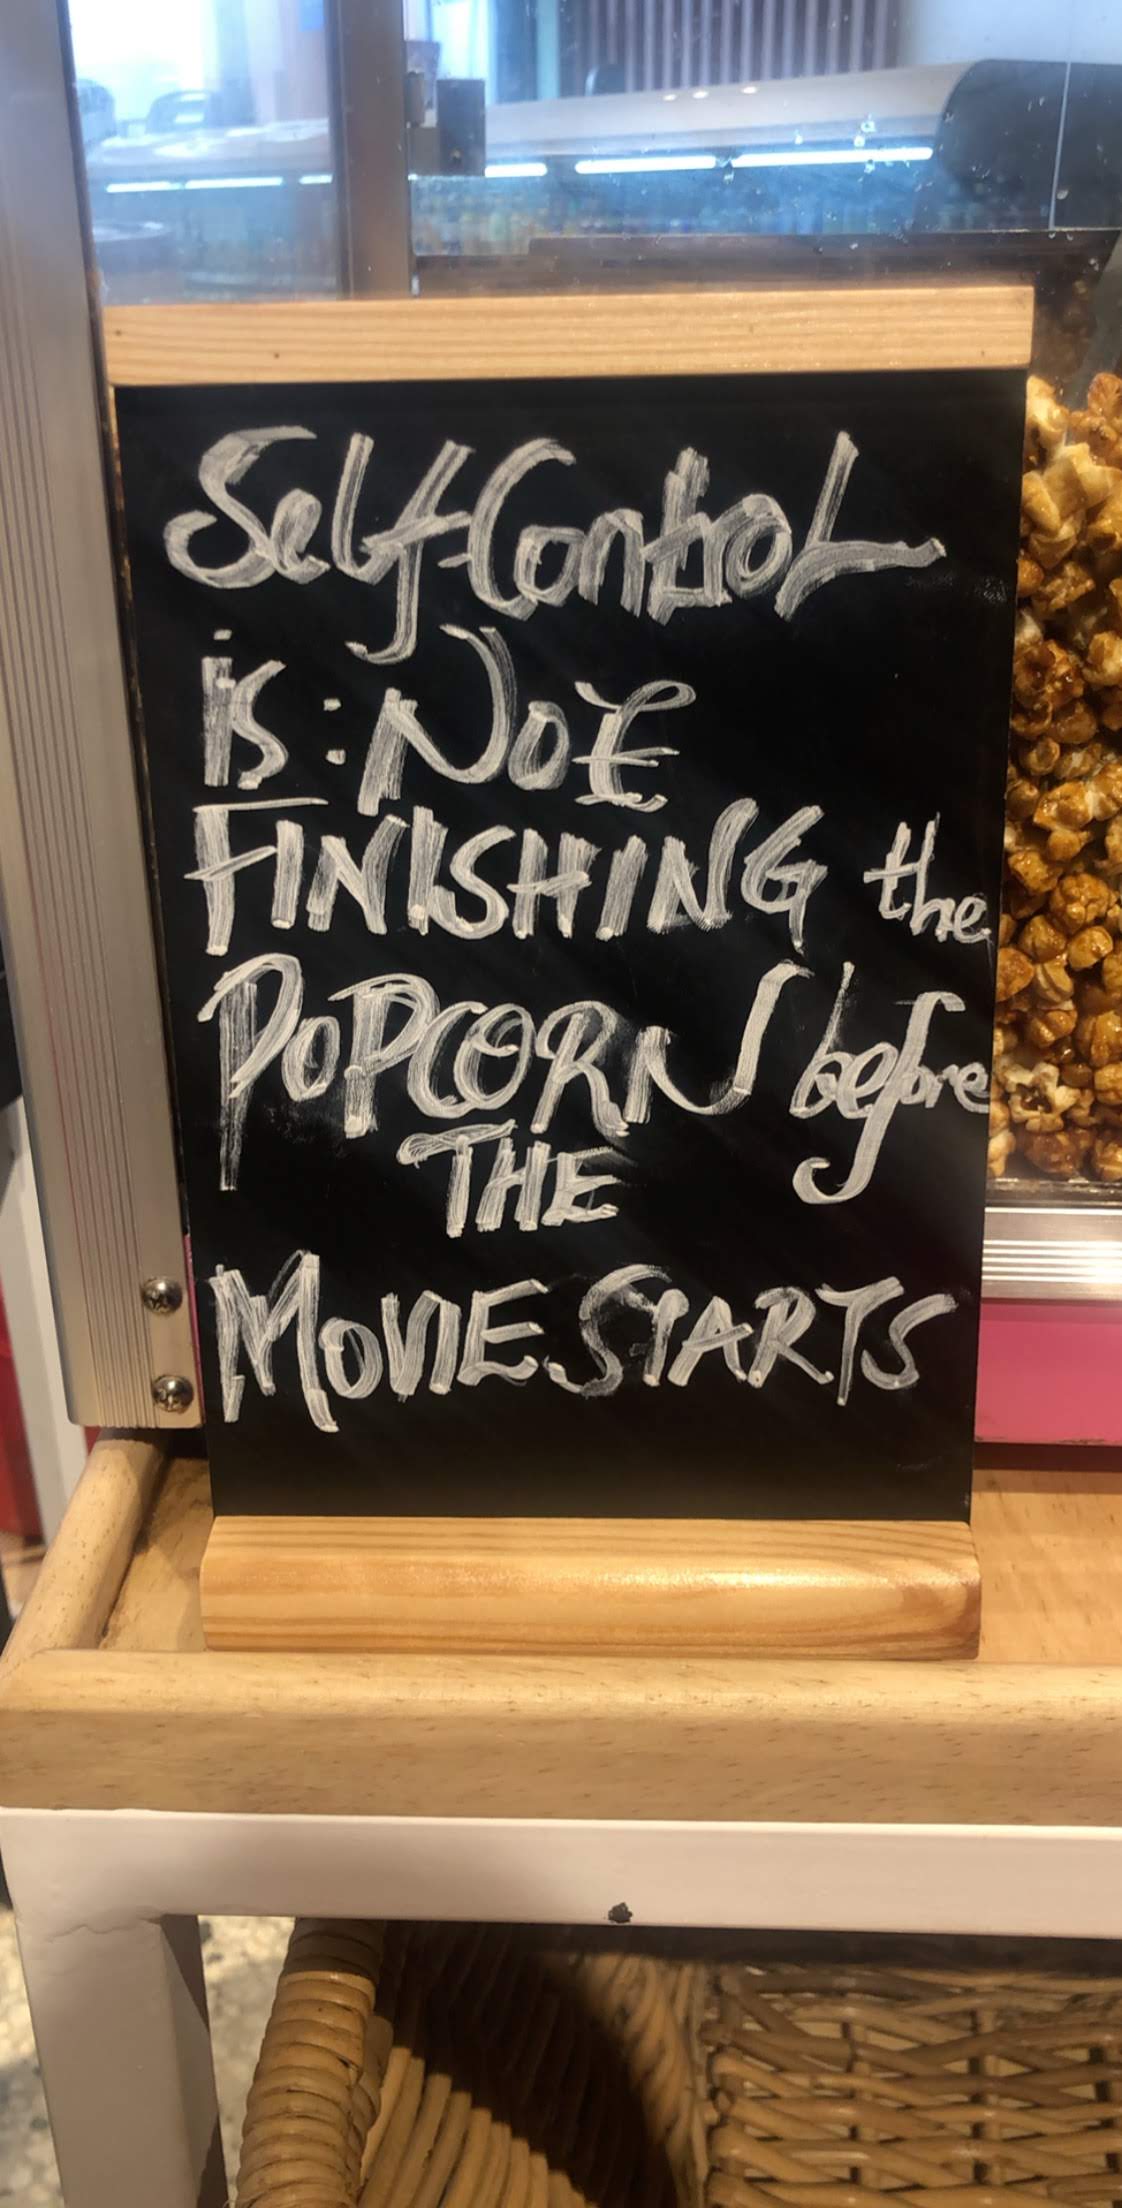 Self-Control
is: Not
FINISHING the
POPCORN before
THE
MOVIE STARTS